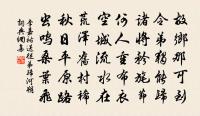 故鄉那可到
令弟獨能歸
諸將矜旄節
何人重布衣
空城流水在
荒澤舊村稀
秋日平原路
蟲鳴桑葉飛
李嘉祐送從弟歸河朔
詞典網集